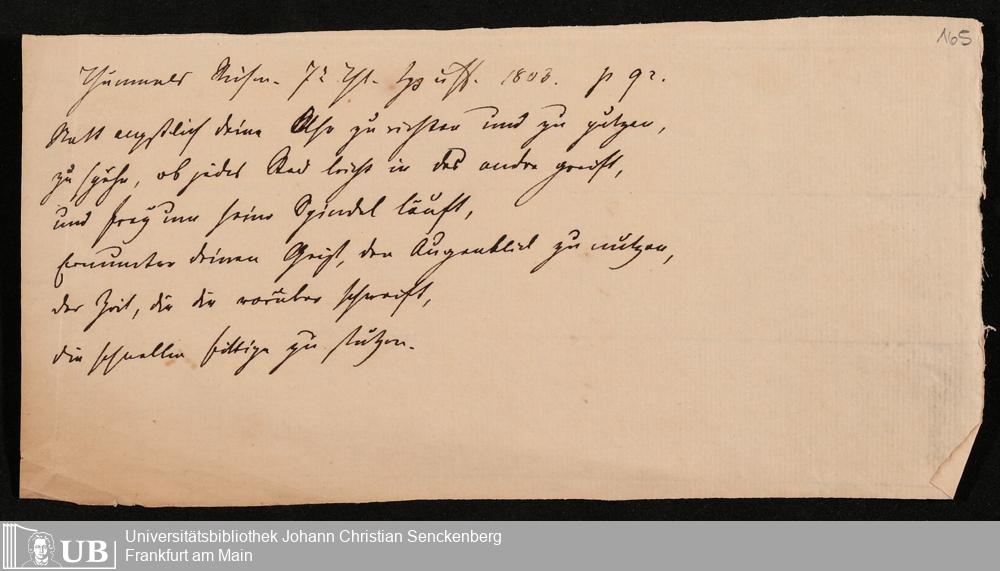 165
Thümmels Reisen. 7r Th. Lpz 1803. p 92.
Statt ängstlich deine Uhr zu richten und zu putzen,
zu spähn, ob jedes Rad leicht in das andre greift,
und frey um seine Spindel läuft,
Ermuntre deinen Geist, den Augenblick zu nutzen,
der Zeit, die dir vorüber schweift,
die schnellen Fittige zu stutzen.
UB
Universitätsbibliothek Johann Christian Senckenberg
Frankfurt am Main